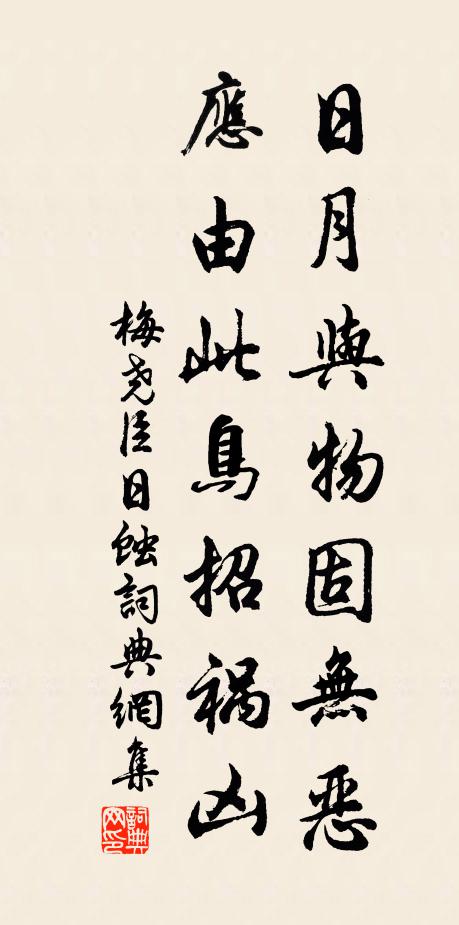 日月與物固無惡
應由此鳥招禍凶
梅堯臣日蝕詞典網集
詞典網印